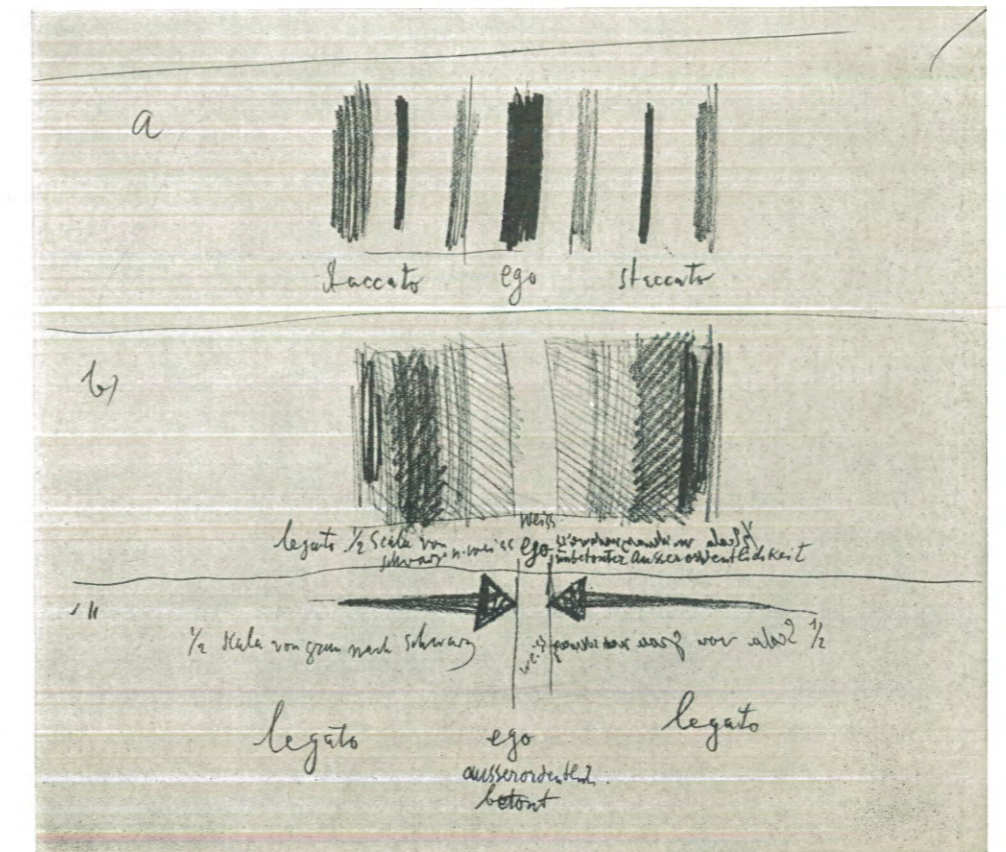 a
staccato ego staccato
b)
weiss
legato ½ Scala von
schwarz n. weiss ego unbetonter Ausserordentlichkeit
½ Skala von grau nach schwarz weiss ½ Scala von grau nach schwarz
legato ego legato
ausserordentlich
betont